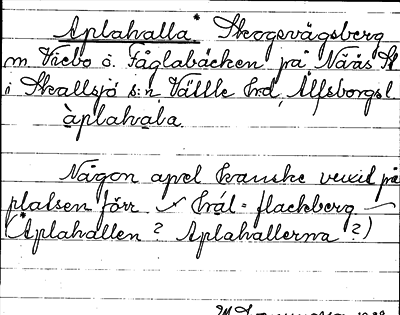 Aplahalla* Skogsvägsberg
m Viebo o. Fåglabäcken på Nääs
i Skallsjö s:n Vättle hrd, Älfsborgs l.
àplahala
Någon apel kanske vuxit på
platsen förr hål = flackberg
(*Aplahallen? Aplahallerna?)